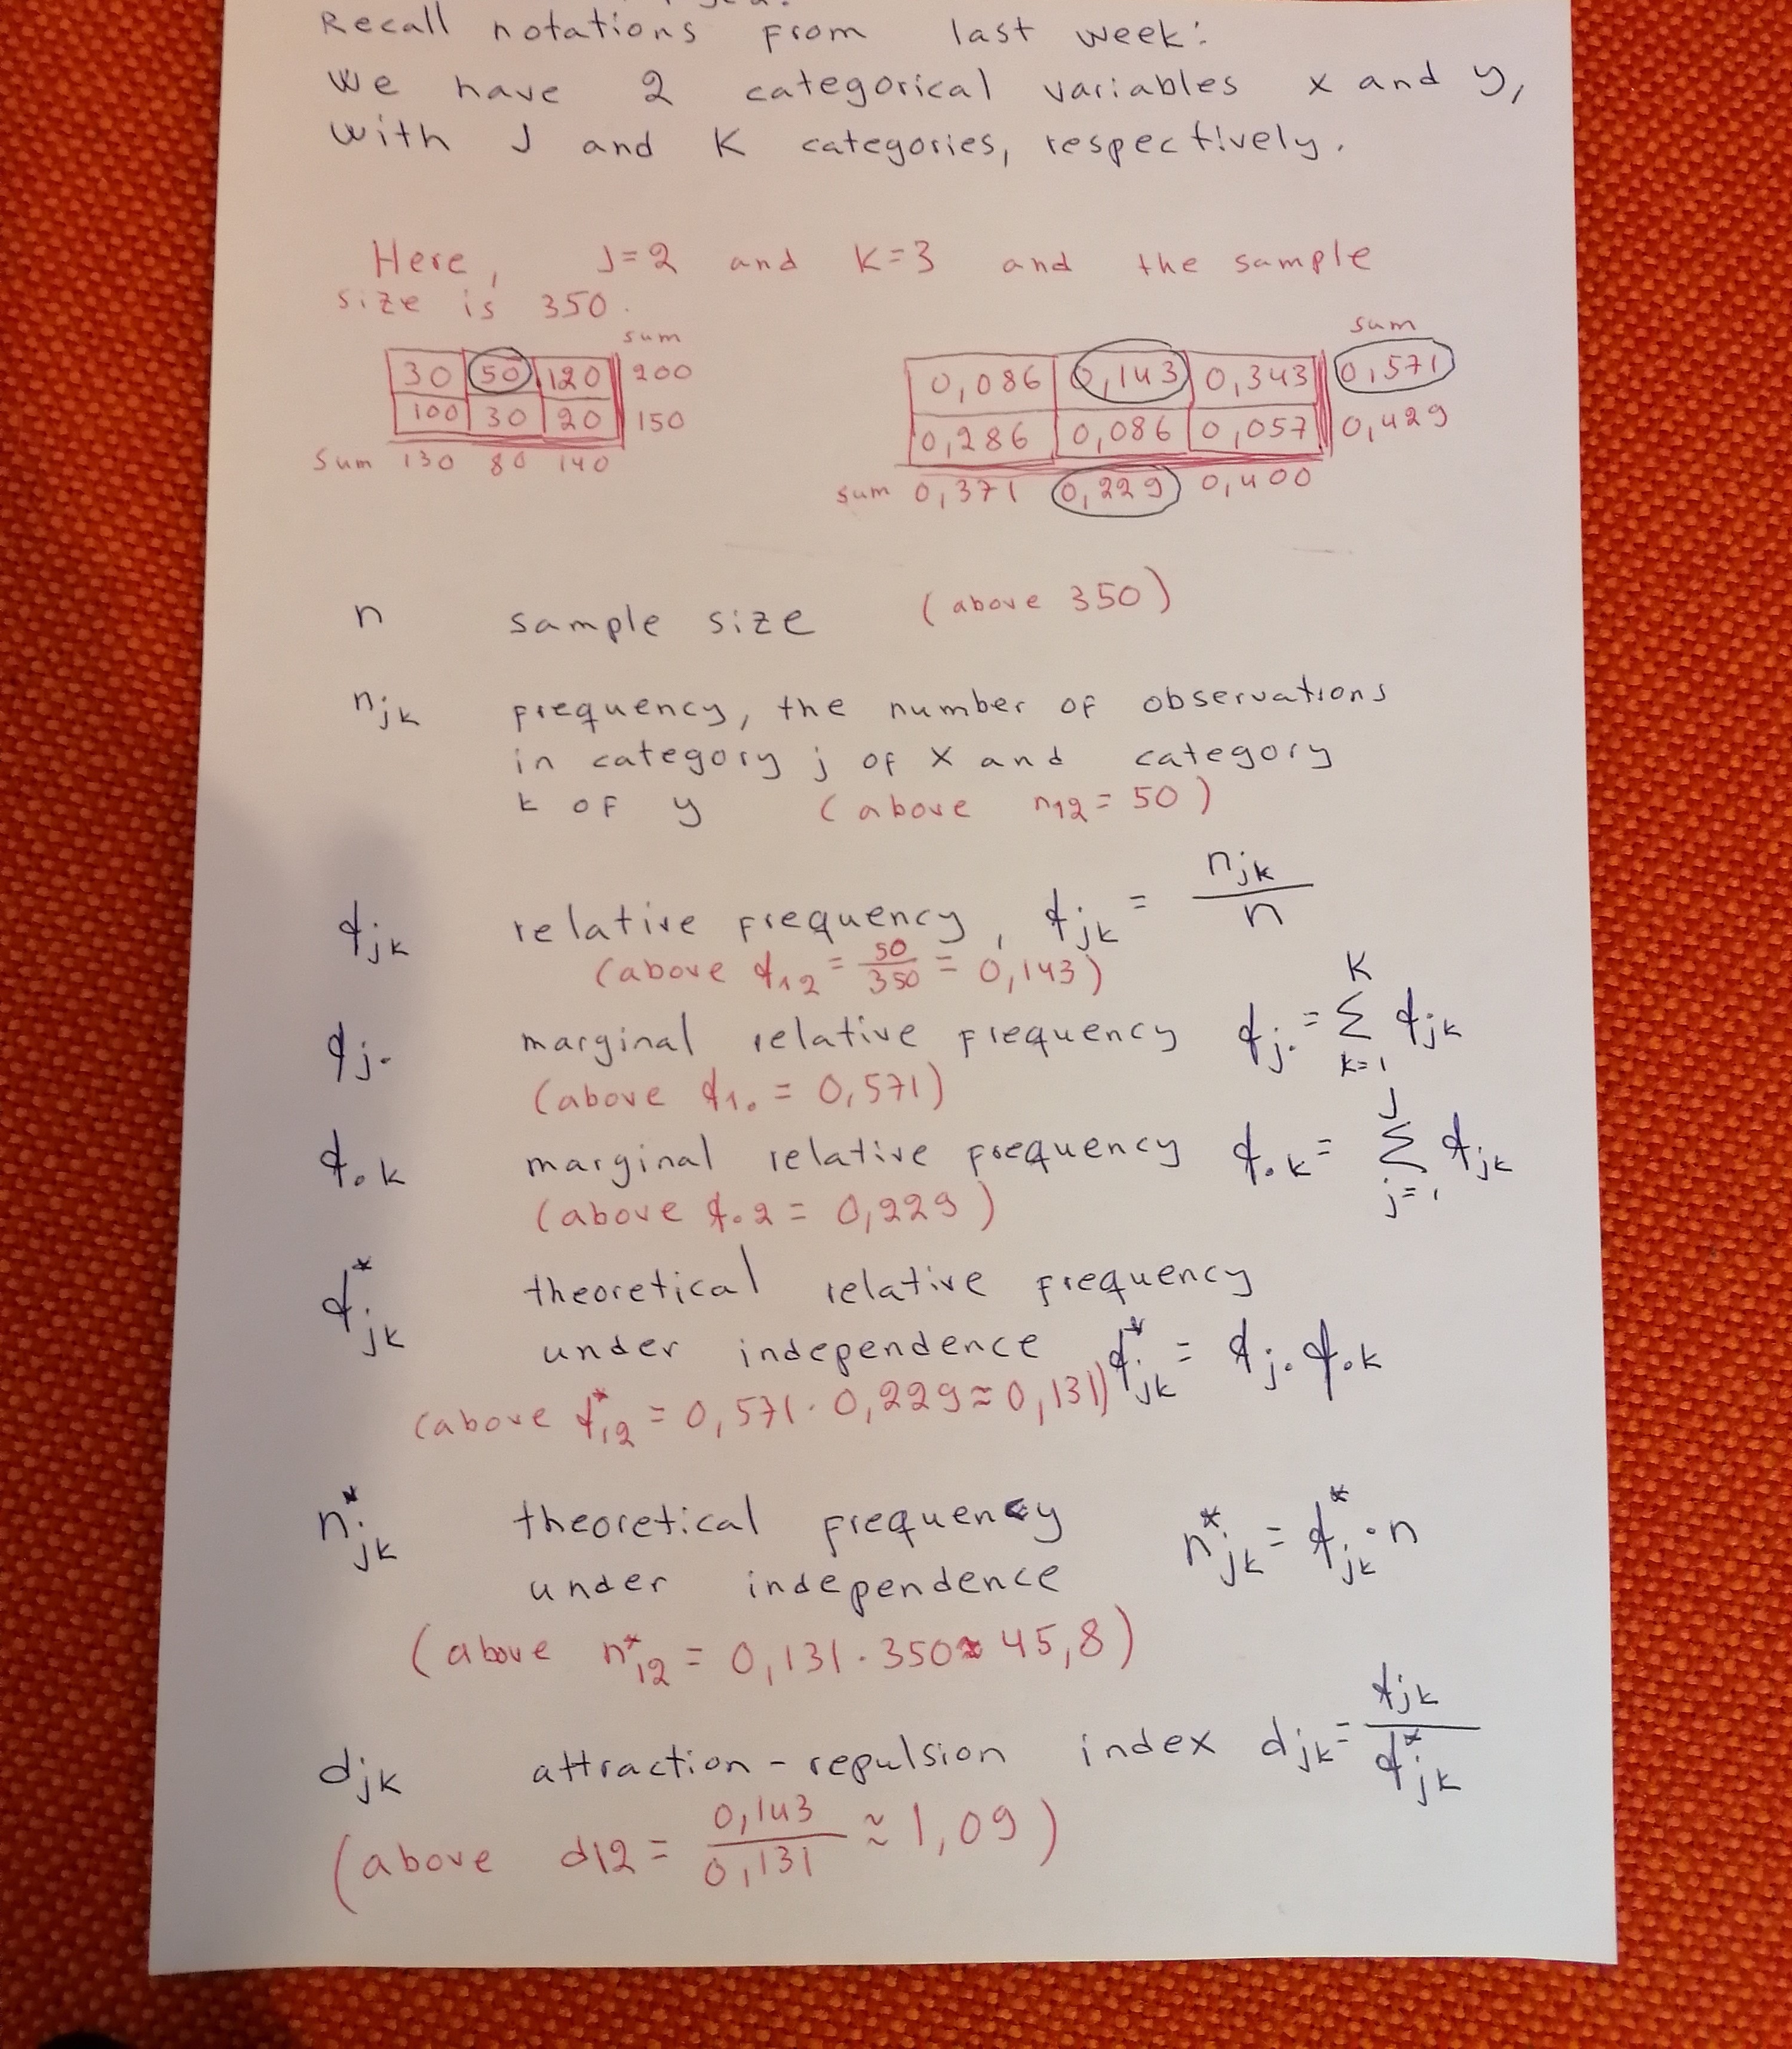 Recall notations from last week:
We have 2 categorical variables x and y,
with J and K categories, respectively.
Here, J=2 and K=3 and the sample
size is 350.
sum
30 50 120 200
100 30 20 150
Sum 130 80 140
sum
0,086 0,143 0,343 0,571
0,286 0,086 0,057 0,429
sum 0,371 0,229 0,400
n sample size (above 350)
n_jk frequency, the number of observations
in category j of x and category
k of y (above n_12 = 50)
f_jk relative frequency, f_jk = n_jk / n
(above f_12 = 50/350 = 0,143)
f_j. marginal relative frequency f_j. = Σ_{k=1}^{K} f_jk
(above f_1. = 0,571)
f_.k marginal relative frequency f_.k = Σ_{j=1}^{J} f_jk
(above f_.2 = 0,229)
f*_jk theoretical relative frequency
under independence f*_jk = f_j. f_.k
(above f*_12 = 0,571 · 0,229 ≈ 0,131)
n*_jk theoretical frequency
under independence n*_jk = f*_jk · n
(above n*_12 = 0,131 · 350 ≈ 45,8)
d_jk attraction-repulsion index d_jk = f_jk / f*_jk
(above d_12 = 0,143 / 0,131 ≈ 1,09)